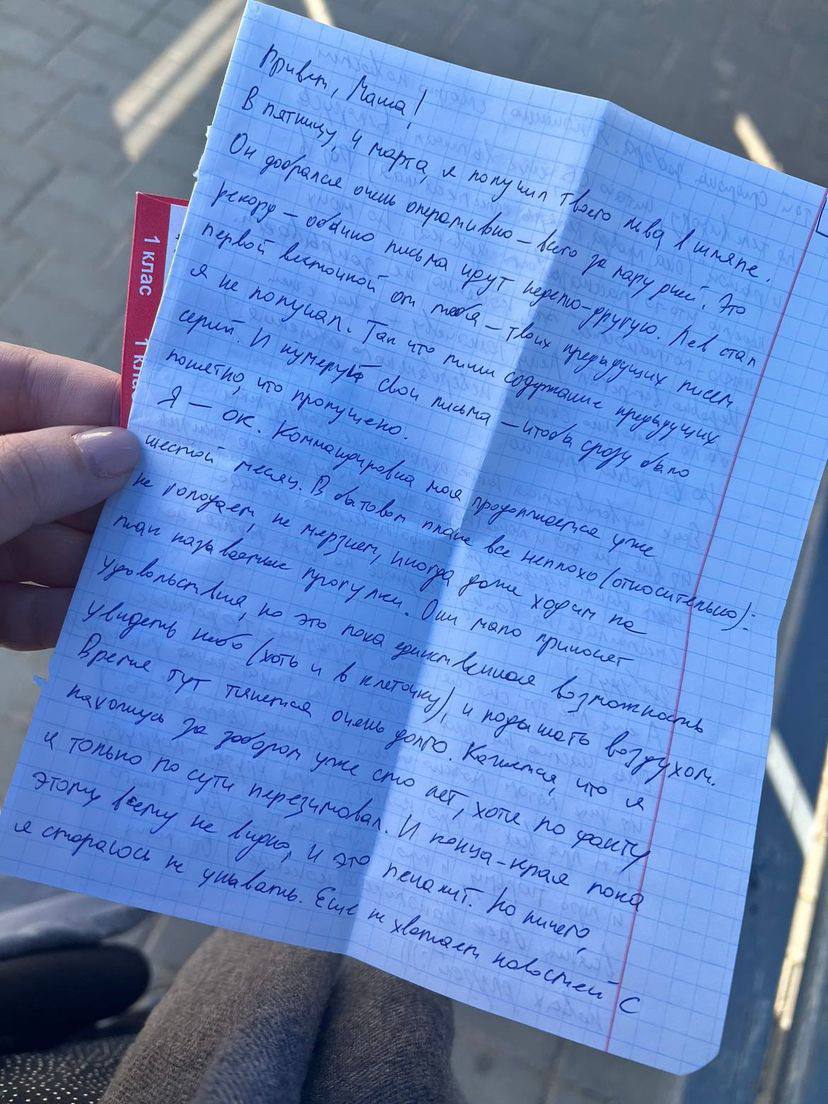 Привет, Маша!
В пятницу, 4 марта, я получил твоего льва в шляпе.
Он добрался очень оперативно – всего за пару дней. Это
рекорд – обычно письма идут неделю-другую. Лев стал
первой весточкой от тебя – твоих предыдущих писем
я не получал. Так что пиши содержание предыдущих
серий. И нумеруй свои письма – чтоб сразу было
понятно, что пропущено.
Я – ок. Командировка моя продолжается уже
шестой месяц. В бытовом плане все неплохо (относительно):
не голодаем, не мерзнем, иногда даже ходим на
так называемые прогулки. Они мало приносят
удовольствия, но это пока единственная возможность
увидеть небо (хоть и в клеточку), и подышать воздухом.
Время тут тянется очень долго. Кажется, что я
нахожусь за забором уже сто лет, хотя по факту
я только по сути перезимовал. И конца-края пока
этому всему не видно, и это печалит. Но ничего,
я стараюсь не унывать. Еще не хватает новостей с
1 клас
1 клас